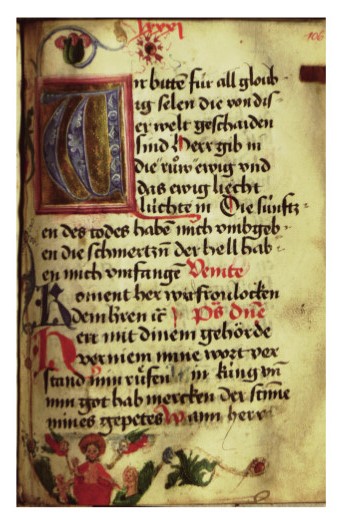 lxxxi
106
Wir bitten für all gloub
ig selen die von dis
er welt geschaiden
sind Herr gib in
die ruͦw ewig vnd
das ewig liecht
lüchte in Die sünftz
en des todes habē mich vmbgeb
en die schmertzn der hell hab
en mich vmfangē Venite
Koment her wir fronlocken
dem hren ꝛc Ps Dn̄e
Herr mit dinem gehörde
verniem mine wort ver
stand min rüfen min king vn̄
min got hab mercken der stīme
mines gepetes Wann herr